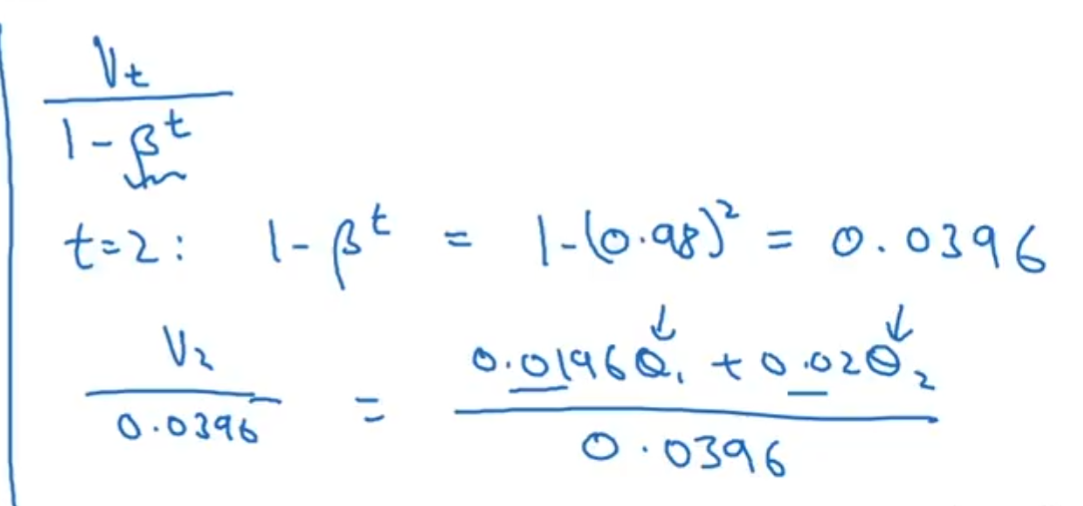 Vₜ
1 - βᵗ
t=2: 1 - βᵗ = 1-(0.98)² = 0.0396
V₂ / 0.0396 = 0.0196θ₁ + 0.02θ₂ / 0.0396